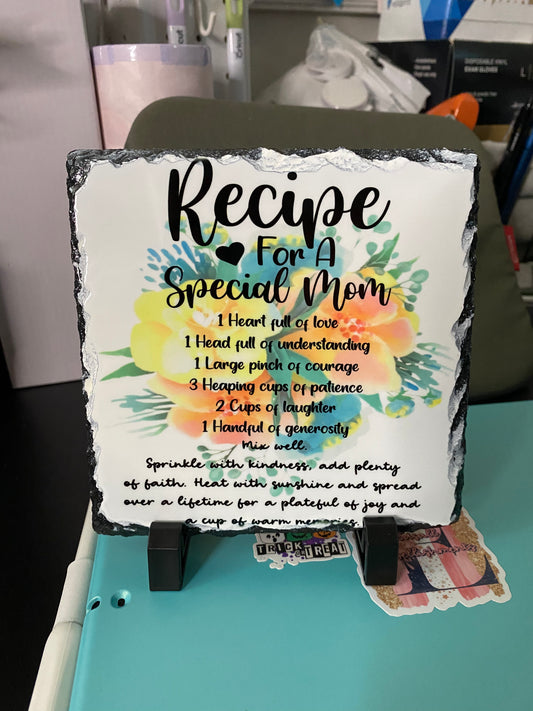 Recipe
For A
Special Mom
1 Heart full of love
1 Head full of understanding
1 Large pinch of courage
3 Heaping cups of patience
2 Cups of laughter
1 Handful of generosity
Mix well.
Sprinkle with kindness, add plenty
of faith. Heat with sunshine and spread
over a lifetime for a plateful of joy and
a cup of warm memories.
TRICK TREAT
Cricut
Cricut
DISPOSABLE VINYL
EXAM GLOVES
L